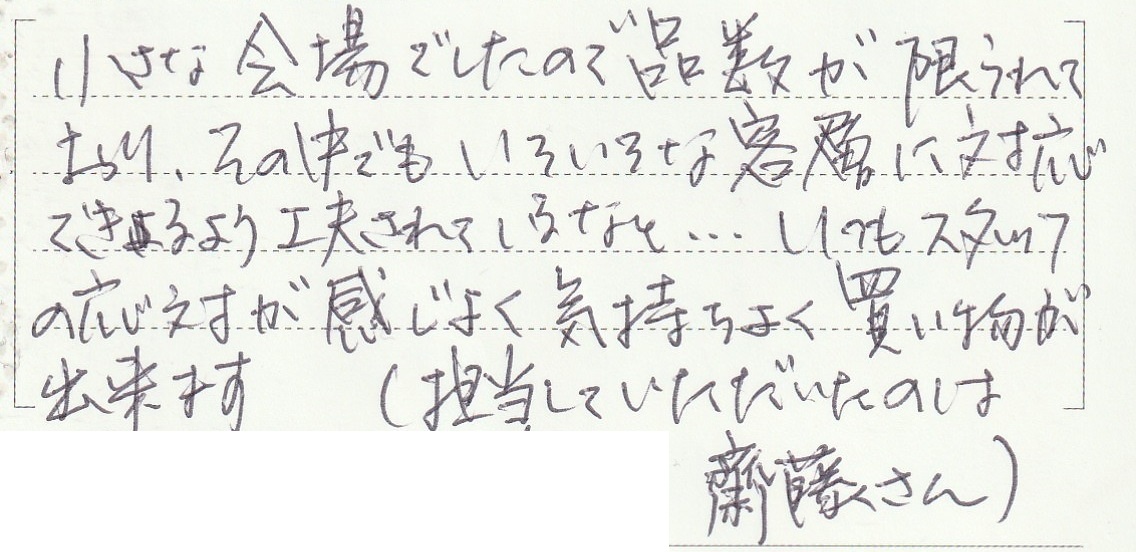 小さな会場でしたので品数が限られて
おり、その中でもいろいろな客層に対応
できるよう工夫されているなと… いつもスタッフ
の応対が感じよく気持ちよく買い物が
出来ます (担当していただいたのは
齋藤さん)